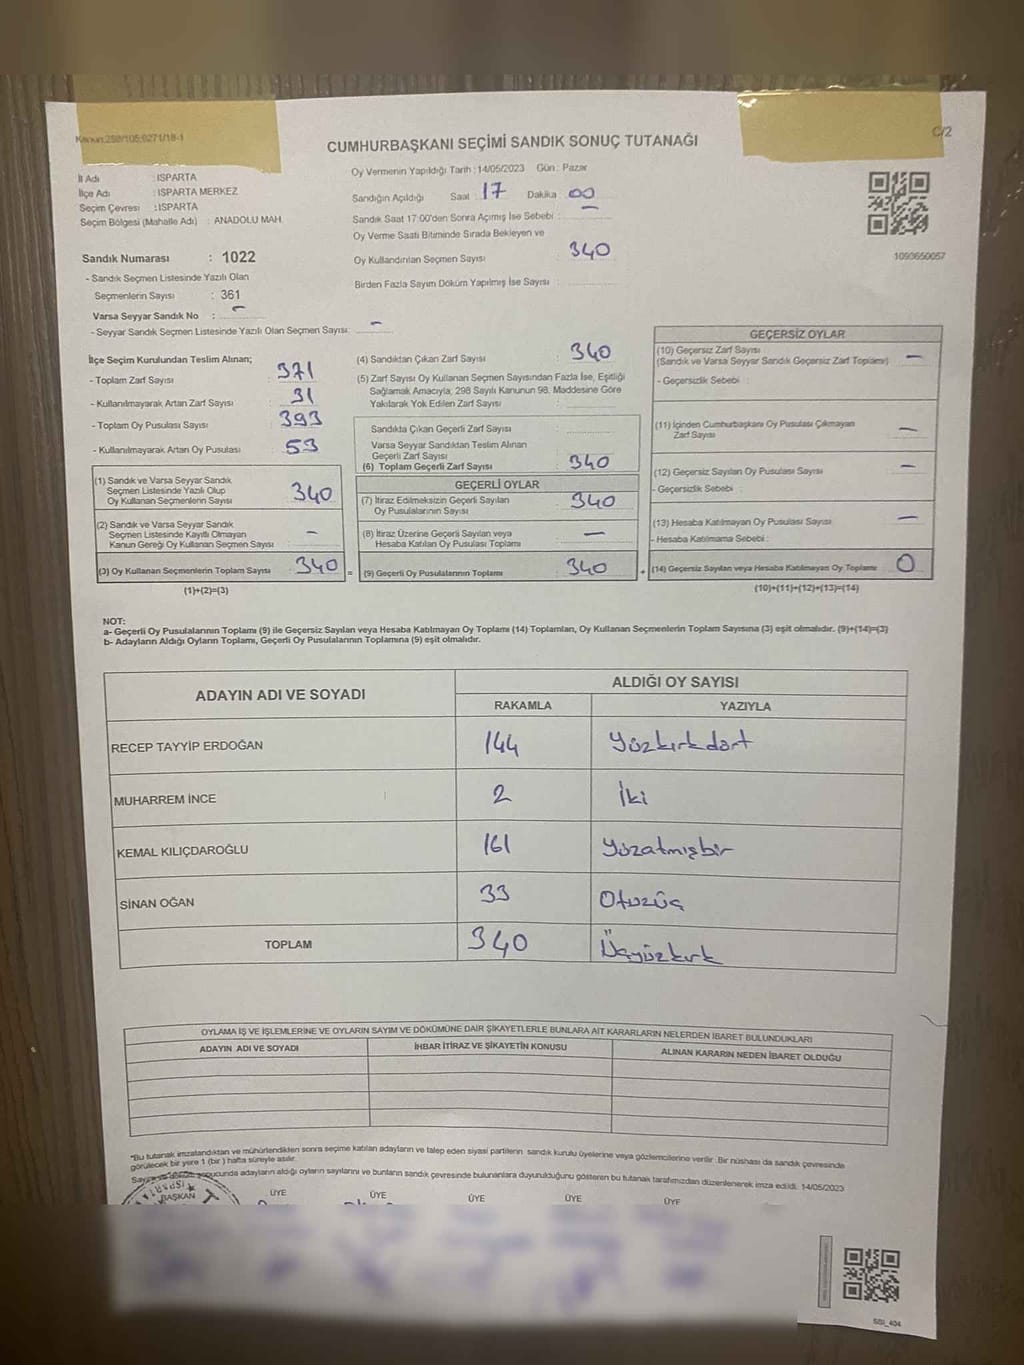 Kanun:298/105,6271/18-1
C/2
CUMHURBAŞKANI SEÇİMİ SANDIK SONUÇ TUTANAĞI
İl Adı : ISPARTA
İlçe Adı : ISPARTA MERKEZ
Seçim Çevresi : ISPARTA
Seçim Bölgesi (Mahalle Adı) : ANADOLU MAH.
Oy Vermenin Yapıldığı Tarih : 14/05/2023 Gün : Pazar
Sandığın Açıldığı Saat : 17 Dakika : 00
Sandık Saat 17:00'den Sonra Açılmış İse Sebebi : –
Oy Verme Saati Bitiminde Sırada Bekleyen ve
Oy Kullandırılan Seçmen Sayısı : 340
Birden Fazla Sayım Döküm Yapılmış İse Sayısı :
1093650057
Sandık Numarası : 1022
- Sandık Seçmen Listesinde Yazılı Olan
Seçmenlerin Sayısı : 361
Varsa Seyyar Sandık No : –
- Seyyar Sandık Seçmen Listesinde Yazılı Olan Seçmen Sayısı: –
İlçe Seçim Kurulundan Teslim Alınan;
- Toplam Zarf Sayısı : 371
- Kullanılmayarak Artan Zarf Sayısı : 31
- Toplam Oy Pusulası Sayısı : 393
- Kullanılmayarak Artan Oy Pusulası : 53
(1) Sandık ve Varsa Seyyar Sandık
Seçmen Listesinde Yazılı Olup
Oy Kullanan Seçmenlerin Sayısı : 340
(2) Sandık ve Varsa Seyyar Sandık
Seçmen Listesinde Kayıtlı Olmayan
Kanun Gereği Oy Kullanan Seçmen Sayısı : –
(3) Oy Kullanan Seçmenlerin Toplam Sayısı : 340
(1)+(2)=(3)
(4) Sandıktan Çıkan Zarf Sayısı : 340
(5) Zarf Sayısı Oy Kullanan Seçmen Sayısından Fazla İse, Eşitliği
Sağlamak Amacıyla; 298 Sayılı Kanunun 98. Maddesine Göre
Yakılarak Yok Edilen Zarf Sayısı :
Sandıkta Çıkan Geçerli Zarf Sayısı :
Varsa Seyyar Sandıktan Teslim Alınan
Geçerli Zarf Sayısı :
(6) Toplam Geçerli Zarf Sayısı : 340
GEÇERLİ OYLAR
(7) İtiraz Edilmeksizin Geçerli Sayılan
Oy Pusulalarının Sayısı : 340
(8) İtiraz Üzerine Geçerli Sayılan veya
Hesaba Katılan Oy Pusulası Toplamı : –
= (9) Geçerli Oy Pusulalarının Toplamı : 340
GEÇERSİZ OYLAR
(10) Geçersiz Zarf Sayısı
(Sandık ve Varsa Seyyar Sandık Geçersiz Zarf Toplamı) : –
- Geçersizlik Sebebi :
(11) İçinden Cumhurbaşkanı Oy Pusulası Çıkmayan
Zarf Sayısı : –
(12) Geçersiz Sayılan Oy Pusulası Sayısı : –
- Geçersizlik Sebebi :
(13) Hesaba Katılmayan Oy Pusulası Sayısı : –
- Hesaba Katılmama Sebebi :
+ (14) Geçersiz Sayılan veya Hesaba Katılmayan Oy Toplamı : 0
(10)+(11)+(12)+(13)=(14)
NOT:
a- Geçerli Oy Pusulalarının Toplamı (9) ile Geçersiz Sayılan veya Hesaba Katılmayan Oy Toplamı (14) Toplamları, Oy Kullanan Seçmenlerin Toplam Sayısına (3) eşit olmalıdır. (9)+(14)=(3)
b- Adayların Aldığı Oyların Toplamı, Geçerli Oy Pusulalarının Toplamına (9) eşit olmalıdır.
ADAYIN ADI VE SOYADI
ALDIĞI OY SAYISI
RAKAMLA YAZIYLA
RECEP TAYYİP ERDOĞAN 144 Yüzkırkdört
MUHARREM İNCE 2 İki
KEMAL KILIÇDAROĞLU 161 Yüzatmışbir
SİNAN OĞAN 33 Otuzüç
TOPLAM 340 Üçyüzkırk
OYLAMA İŞ VE İŞLEMLERİNE VE OYLARIN SAYIM VE DÖKÜMÜNE DAİR ŞİKAYETLERLE BUNLARA AİT KARARLARIN NELERDEN İBARET BULUNDUKLARI
ADAYIN ADI VE SOYADI İHBAR İTİRAZ VE ŞİKAYETİN KONUSU ALINAN KARARIN NEDEN İBARET OLDUĞU
*Bu tutanak imzalandıktan ve mühürlendikten sonra seçime katılan adayların ve talep eden siyasi partilerin sandık kurulu üyelerine veya gözlemcilerine verilir. Bir nüshası da sandık çevresinde
görülecek bir yere 1 (bir) hafta süreyle asılır.
sonucunda adayların aldığı oyların sayılarını ve bunların sandık çevresinde bulunanlara duyurulduğunu gösteren bu tutanak tarafımızdan düzenlenerek imza edildi. 14/05/2023
BAŞKAN ÜYE ÜYE ÜYE ÜYE ÜYE
SSI_404